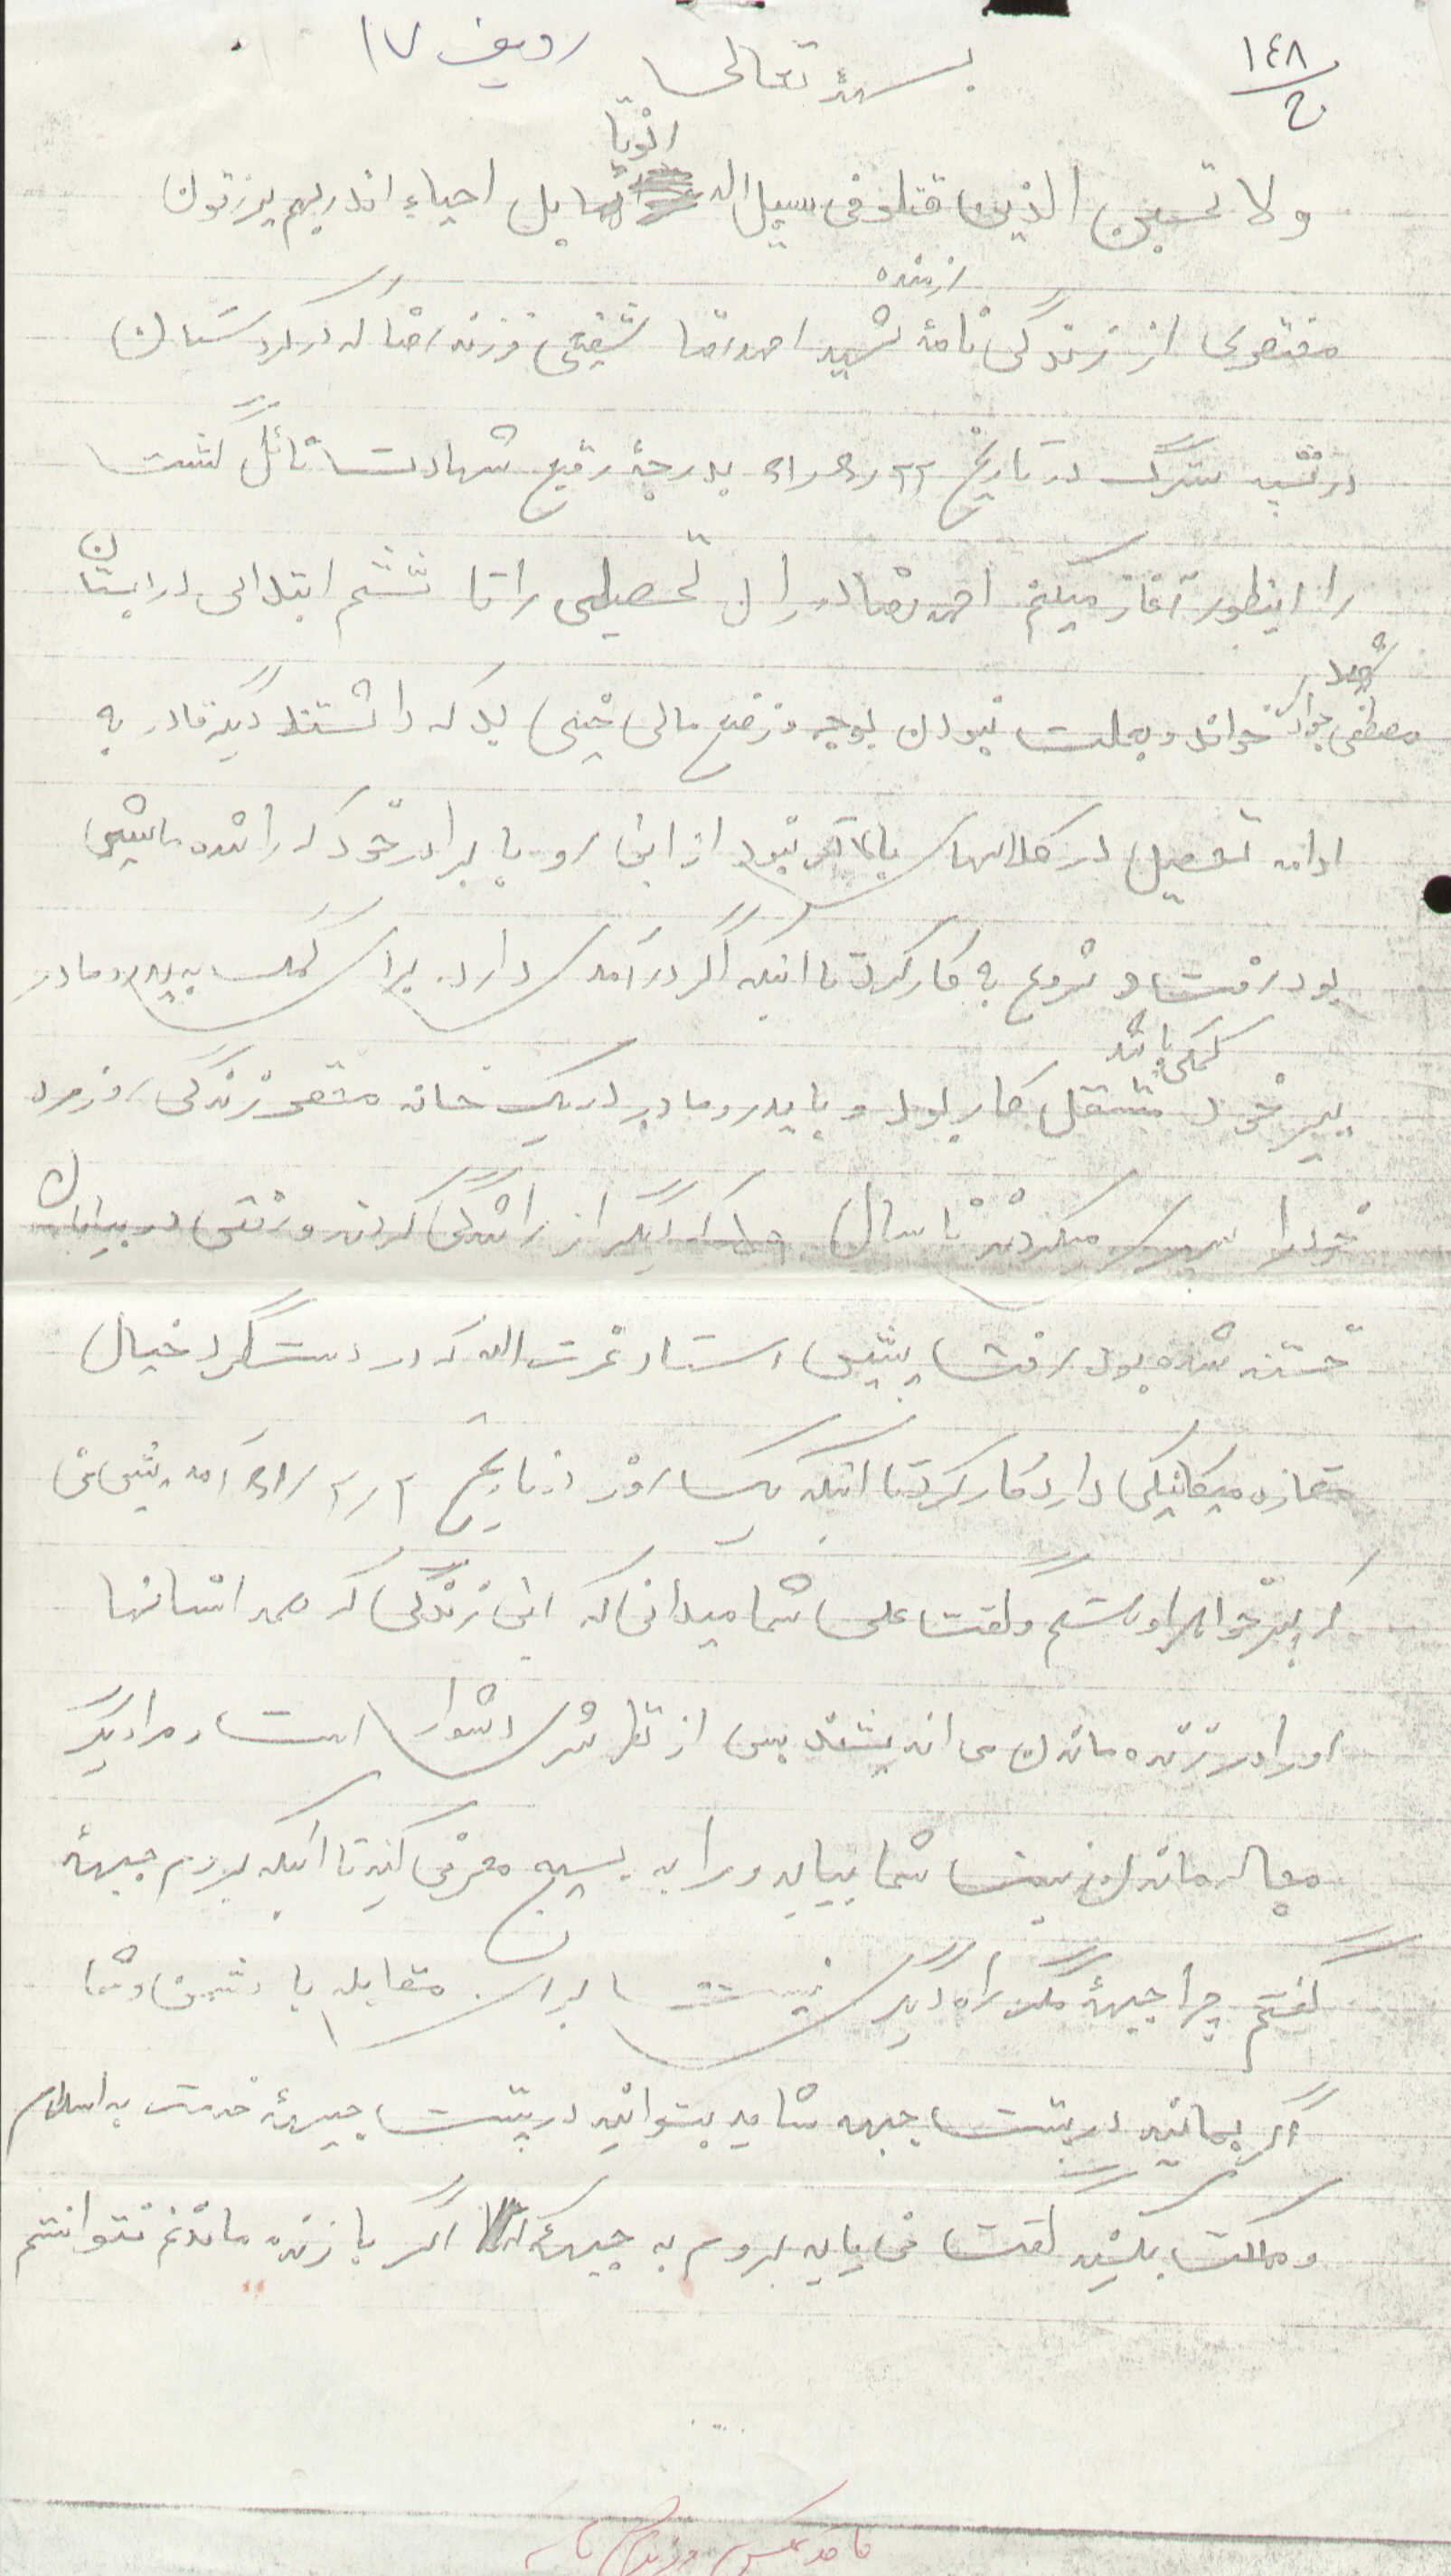 ردیف ۱۷
۱٤۸
ح
بسمه تعالی
ولا تحسبن الذین قتلو فی سبیل اله امواتا بل احیاء اند ربهم یرزقون
مختصری از زندگی نامه رزمنده شهید احمدرضا شفیعی فرزند رضا که در کردستان
در تاریخ ۲۲ر۵ر۶۱ بدرجهٔ رفیع شهادت نائل گشت
را اینطور آغاز میکنم احمدرضا دوران تحصیلی را تا ششم ابتدائی در دبستان
شهید مصطفی جوادی خواند و بعلت نبودن بوجه وضع مالی خیلی بد که داشتند دیگر قادر به
ادامه تحصیل در کلاسهای بالاتر نبود از این رو با برادر خود که راننده ماشین
بود رفت و شروع به کار کرد تا اینکه اگر درآمدی دارد برای کمک به پدر و مادر
پیر خود کمکی باشد مشغل کار بود و با پدر و مادر در یک خانه زندگی روزمره
خود را سپری میکردند تا سال که دیگر از رانندگی کردن و رفتن در بیابان
خسته شده بود رفت پیش استاد عزت اله که در دستگرد خیال
مغازه میکانیکی دارد کار کرد تا اینکه یک روز در تاریخ ۲ر۲ر۶۱ آمد پیش من
که پسر خواهر او باشم و گفت علی شما میدانی که این زندگی که همه انسانها
او را در زنده ماندن می اندیشند پس از نظر من دشوار است و مرا دیگر
مجال ماندن نیست شما بیایید و مرا به بسیج معرفی کنید تا اینکه بروم جبههٔ
گفتم چرا جبههٔ مگر راه دیگری نیست برای مقابله با دشمن و شما
اگر بمانید در پشت جبهه شاید بتوانید در پشت جبههٔ خدمت به اسلام
و مملکت بکنید گفت من باید بروم به جبههٔ اگر با زنده ماندنم نتوانستم